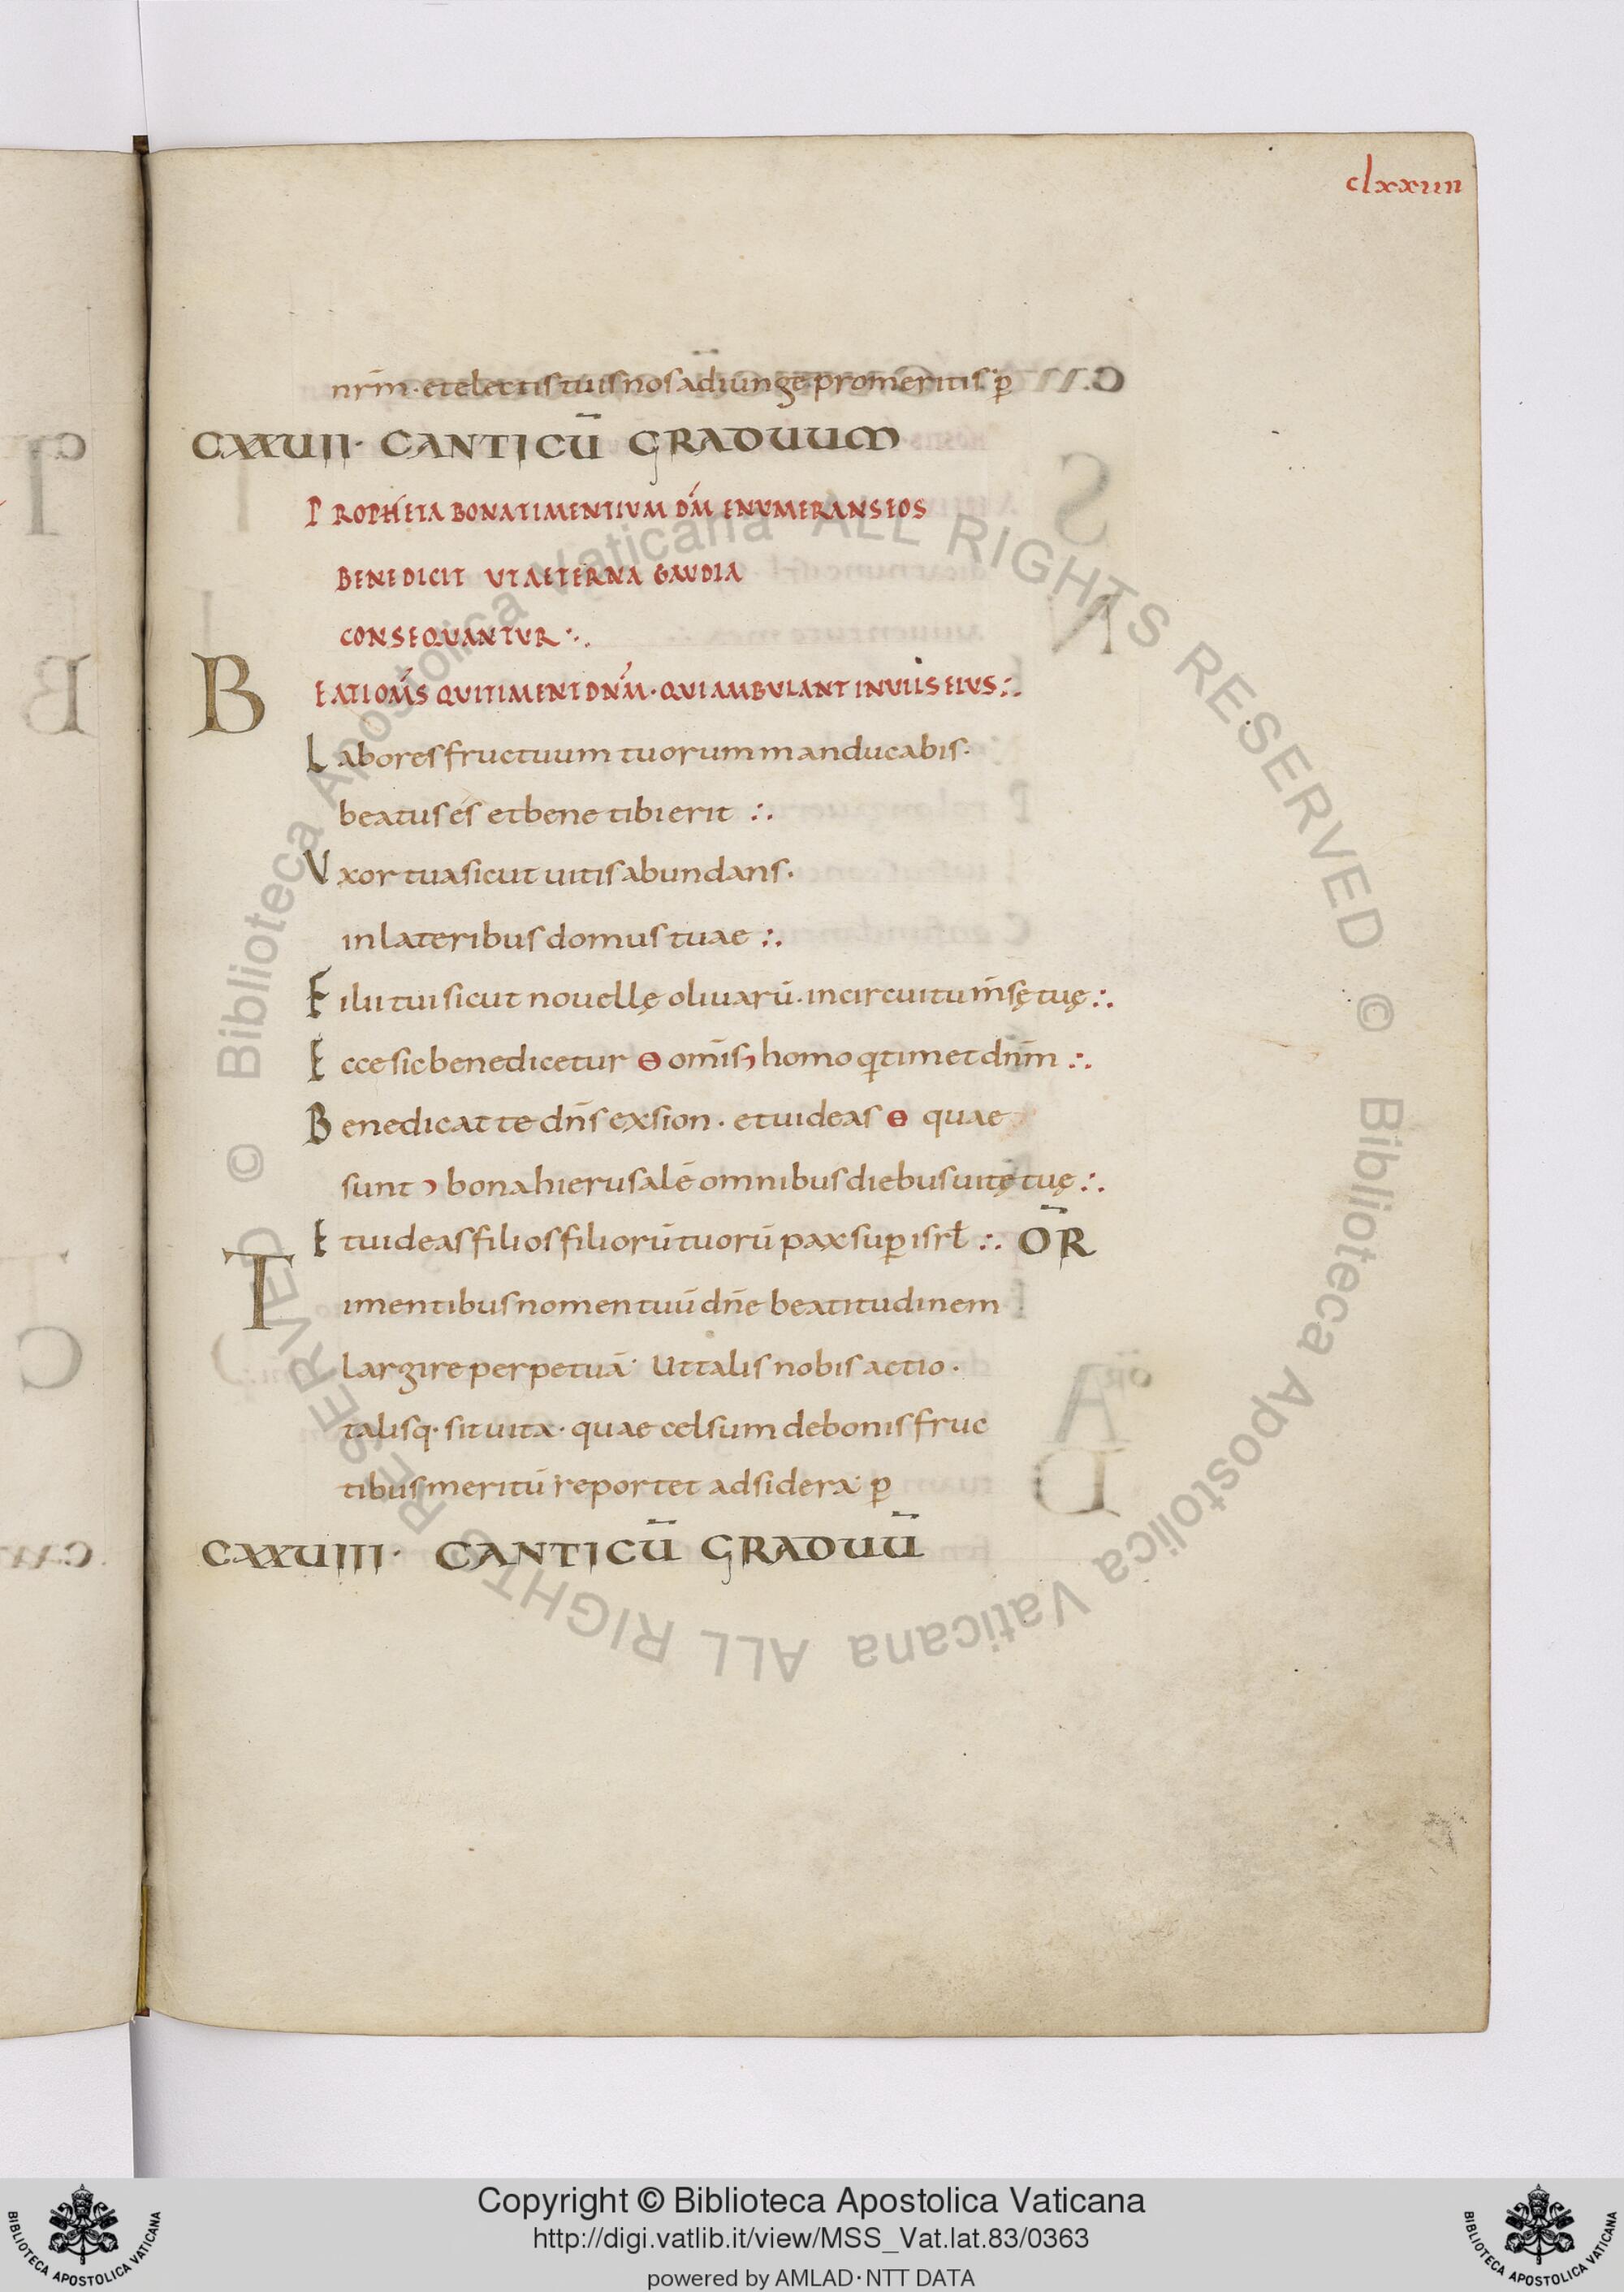 clxxiiii
nr̄m · et electis tuis nos adiunge pro meritis · p̄
CXXUII · CANTICŪ GRADUUM
PROPHETA BONA TIMENTIUM DM̄ ENUMERANS EOS
BENEDICIT UT AETERNA GAUDIA
CONSEQUANTUR ∴
BEATI OM̄S QUI TIMENT DNM̄ · QUI AMBULANT IN VIIS EIUS ∴
Labores fructuum tuorum manducabis ·
beatus és et bene tibi erit ∴
Uxor tua sicut uitis abundans ·
in lateribus domus tuae ∴
Filii tui sicut nouellę oliuarū · in circuitu m̄sę tuę ∴
Ecce sic benedicetur ɵ omīs homo q̄ timet dnm̄ ∴
Benedicat te dn̄s ex sion · et uideas ɵ quae
sunt bona hierusalē omnibus diebus uitę tuę ∴
Et uideas filios filiorū tuorū pax sup̄ isrƚ ∴ OR̄
Timentibus nomen tuū dn̄e beatitudinem
largire perpetuā · Ut talis nobis actio ·
talisq · sit uita · quae celsum de bonis fruc
tibus meritū reportet ad sidera · p̄
CXXUIII · CANTICŪ GRADUŪ
© Biblioteca Apostolica Vaticana ALL RIGHTS RESERVED © Biblioteca Apostolica Vaticana ALL RIGHTS RESERVED
Copyright © Biblioteca Apostolica Vaticana
http://digi.vatlib.it/view/MSS_Vat.lat.83/0363
powered by AMLAD·NTT DATA
BIBLIOTECA APOSTOLICA VATICANA
BIBLIOTECA APOSTOLICA VATICANA